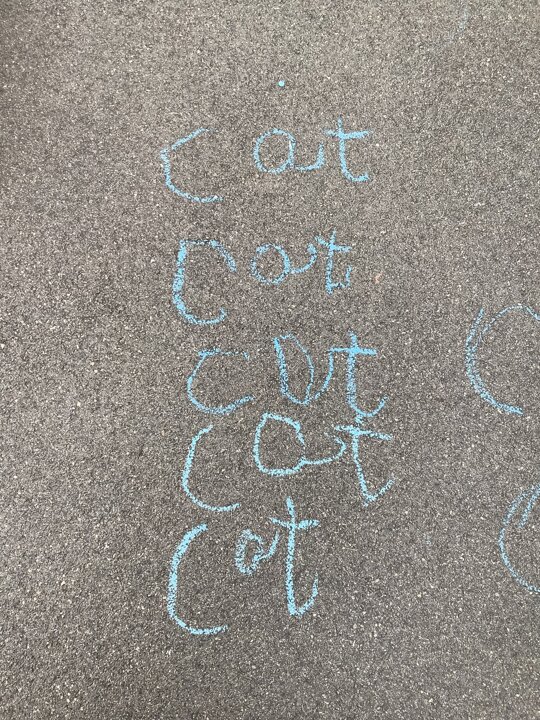 cat
cat
cat
cat
cat